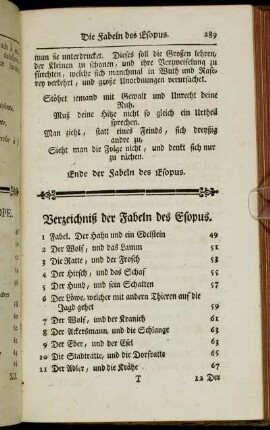 Die Fabeln des Esopus. 289
man sie unterdrucket. Dieses soll die Großen lehren,
der Kleinen zu schonen, und ihre Verzweiselung zu
fürchten, welche sich manchmal in Wuth und Rase-
rey verkehrt, und große Unordnungen verursachet.
Stöhret jemand mit Gewalt und Unrecht deine
Ruh,
Muß deine Hitze nicht so gleich ein Urtheil
sprechen.
Man zieht, statt eines Feinds, sich dreyßig
andre zu,
Sieht man die Folge nicht, und denkt sich nur
zu rächen.
Ende der Fabeln des Esopus.
Verzeichniß der Fabeln des Esopus.
1 Fabel. Der Hahn und ein Edelstein 49
2 Der Wolf, und das Lamm 51
3 Die Ratte, und der Frosch 53
4 Der Hirsch, und das Schaf 55
5 Der Hund, und sein Schatten 57
6 Der Löwe, welcher mit andern Thieren auf die
Jagd gehet 59
7 Der Wolf, und der Kranich 61
8 Der Ackersmann, und die Schlange 63
9 Der Eber, und der Esel 63
10 Die Stadtratte, und die Dorfratte 65
11 Der Adler, und die Krähe 67
T 12 Der
OPE.
XII.